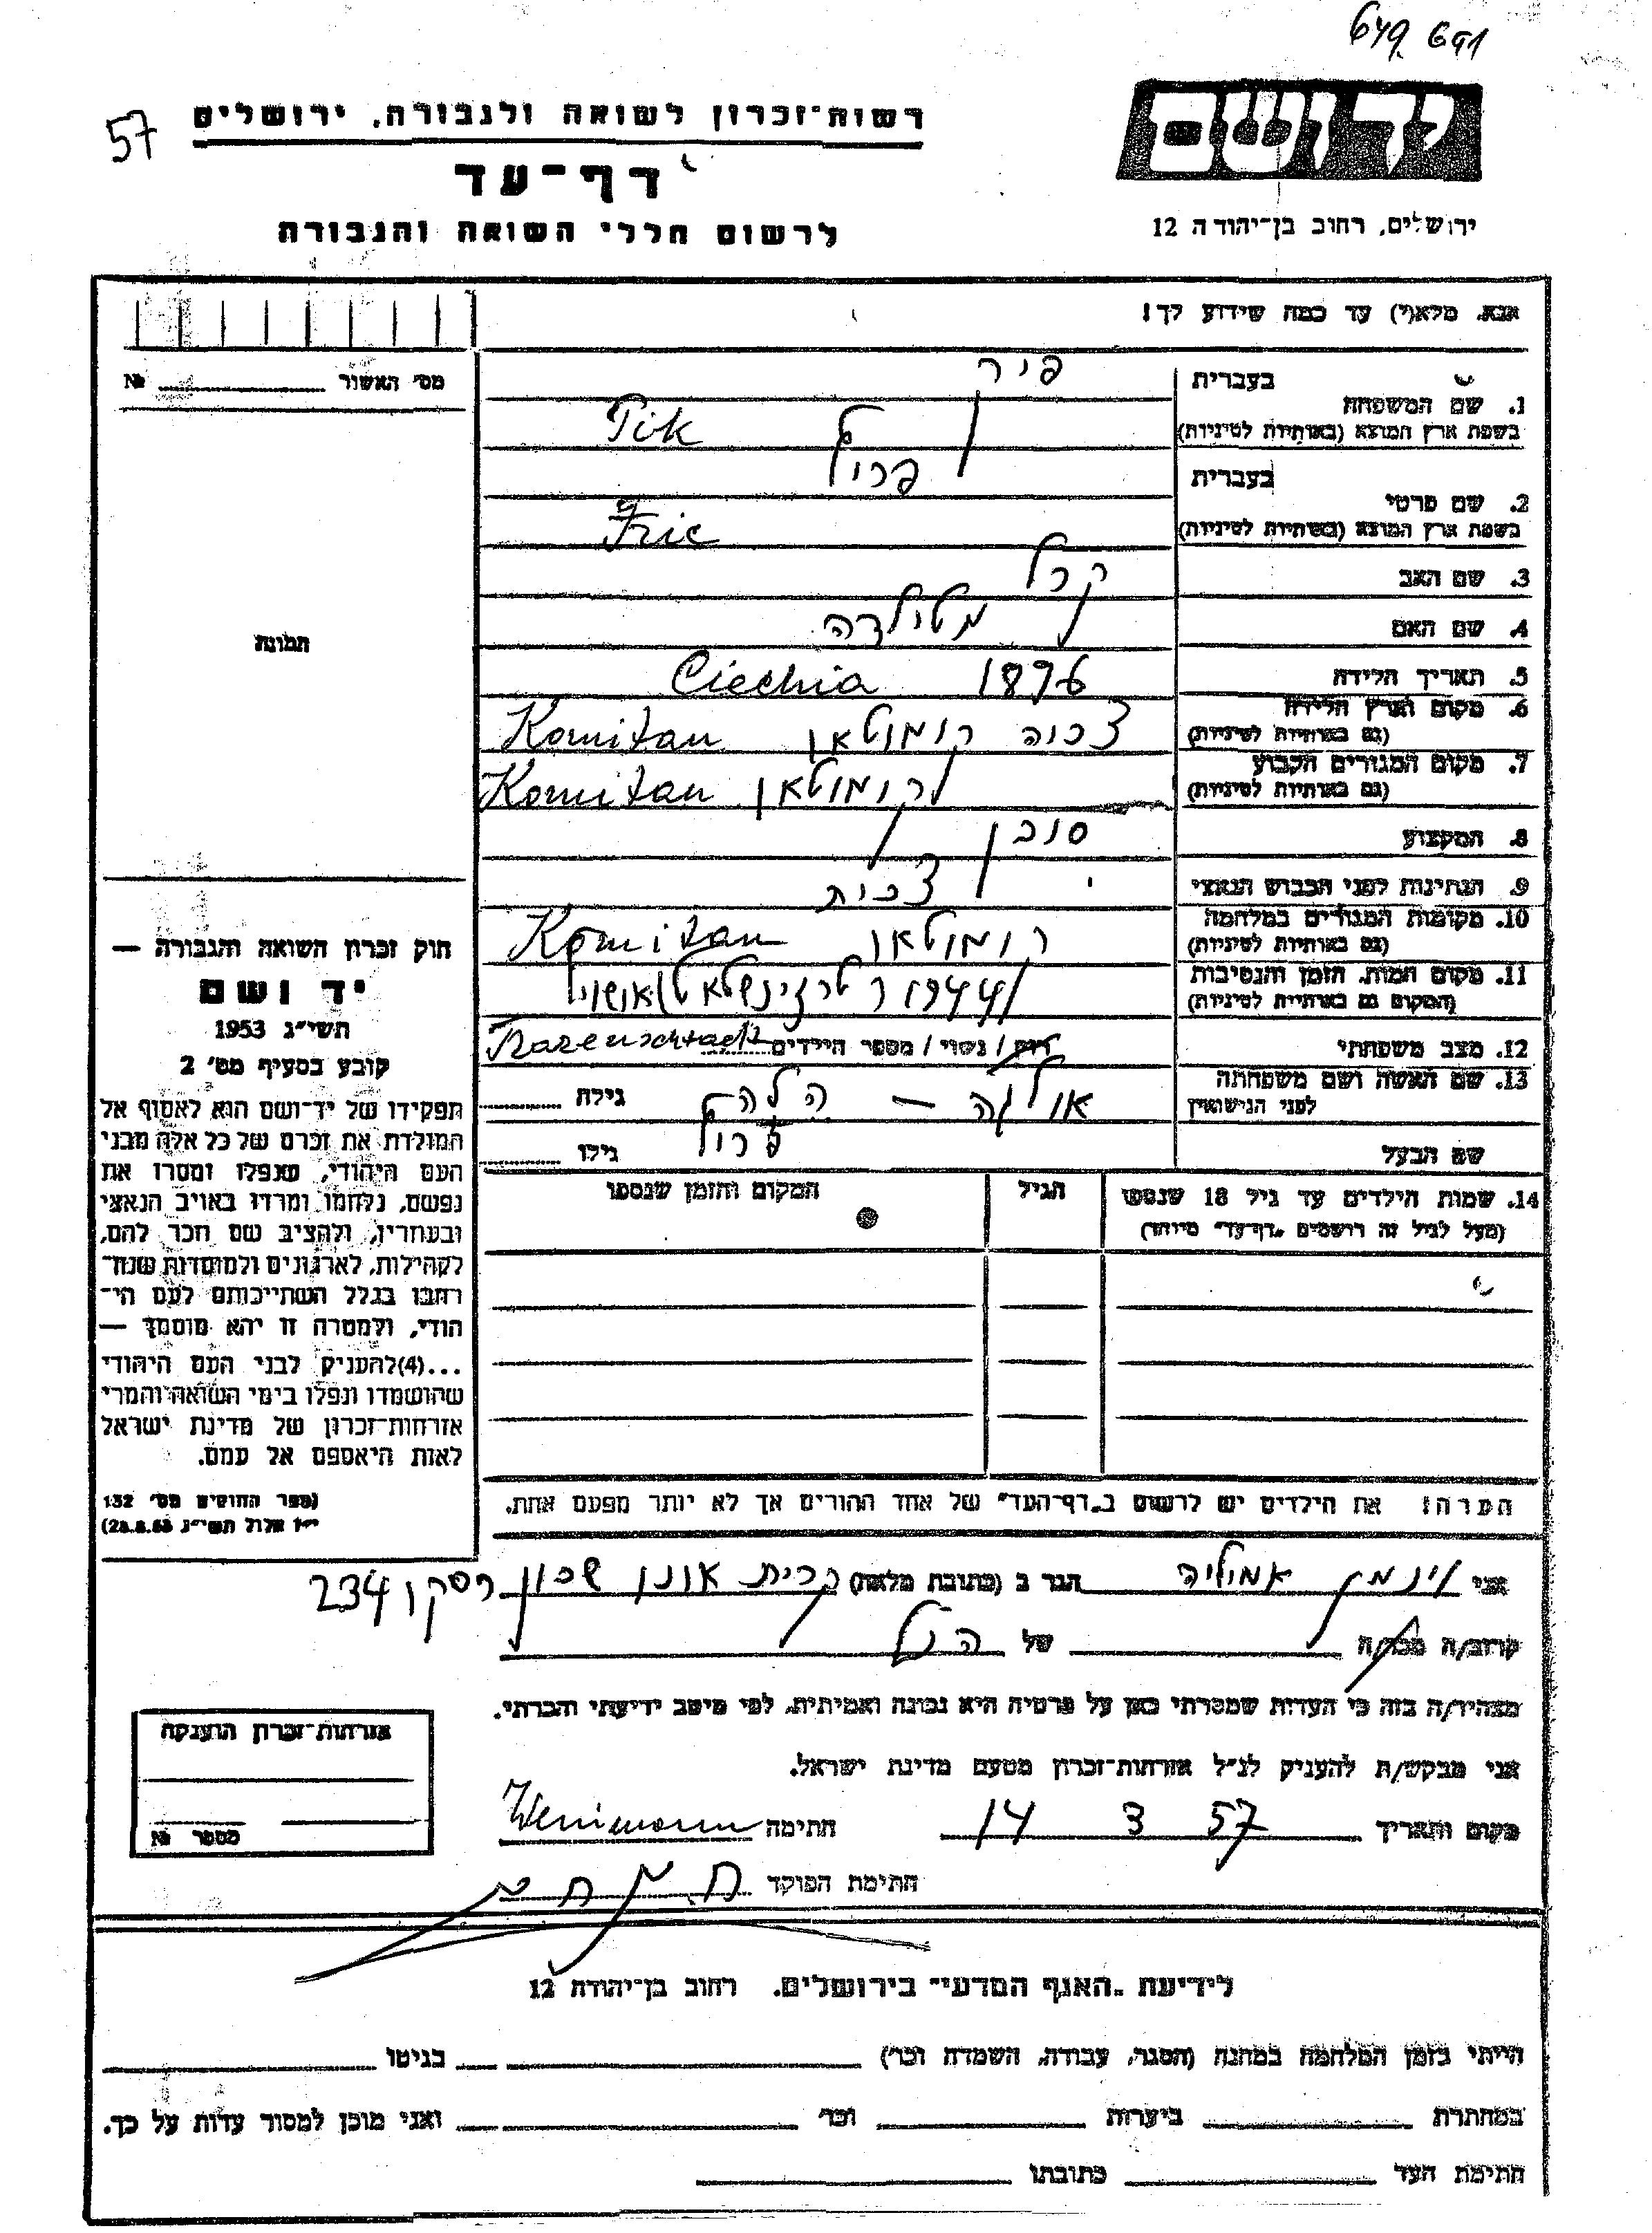 649691
57
רשות־זכרון לשואה ולגבורה, ירושלים
דף־עד
לרשום חללי השואה והגבורה
ידושם
ירושלים, רחוב בן־יהודה 12
אנא, מלא(י) עד כמה שידוע לך!
מס' האשור № 
1. שם המשפחה
בעברית פיק
בשפת ארץ המוצא (באותיות לטיניות) Pik
2. שם פרטי
בעברית פריץ
בשפת ארץ המוצא (באותיות לטיניות) Fric
3. שם האב קרל
4. שם האם מטילדה
5. תאריך הלידה 1896 Ciechia
6. מקום וארץ הלידה
(גם באותיות לטיניות) צכיה קומוטאן Komitan
7. מקום המגורים הקבוע
(גם באותיות לטיניות) קומוטאן Komitan
8. המקצוע סוכן
9. הנתינות לפני הכבוש הנאצי צכית
10. מקומות המגורים במלחמה
(גם באותיות לטיניות) קומוטאן Komitan
11. מקום המות, הזמן והנסיבות
(המקום גם באותיות לטיניות) 1944
12. מצב משפחתי רוק / נשוי / מספר הילדים
13. שם האשה ושם משפחתה
לפני הנישואין אולגה – גילה
שם הבעל גילו
14. שמות הילדים עד גיל 18 שנספו
(מעל לגיל זה רושמים "דף־עד" מיוחד)
הגיל
המקום והזמן שנספו
הערה! את הילדים יש לרשום ב"דף־העד" של אחד ההורים אך לא יותר מפעם אחת.
תמונה
חוק זכרון השואה והגבורה —
יד ושם
תשי"ג 1953
קובע בסעיף מס' 2
תפקידו של יד־ושם הוא לאסוף אל
המולדת את זכרם של כל אלה מבני
העם היהודי, שנפלו ומסרו את
נפשם, נלחמו ומרדו באויב הנאצי
ובעוזריו, ולהציב שם וזכר להם,
לקהילות, לארגונים ולמוסדות שנח־
רבו בגלל השתייכותם לעם הי־
הודי, ולמטרה זו יהא מוסמך —
...(4)להעניק לבני העם היהודי
שהושמדו ונפלו בימי השואה והמרי
אזרחות־זכרון של מדינת ישראל
לאות היאספם אל עמם.
(ספר החוקים מס' 132
י"ז אלול תשי"ג 28.8.53)
אני וינמן אמיליה הגר ב (כתובת מלאה) קרית אונו שכון רסקו 234
קרוב/ה מכר/ה של הנ"ל
מצהיר/ה בזה כי העדות שמסרתי כאן על פרטיה היא נכונה ואמיתית, לפי מיטב ידיעתי והכרתי.
אני מבקש/ת להעניק לנ"ל אזרחות־זכרון מטעם מדינת ישראל.
מקום ותאריך 14 3 57 חתימה
חתימת הפוקד
אזרחות־זכרון הוענקה
מספר №
לידיעת "האגף המדעי" בירושלים, רחוב בן־יהודה 12
הייתי בזמן המלחמה במחנה (הסגר, עבודה, השמדה וכו') בגיטו
במחתרת ביערות וכו' ואני מוכן למסור עדות על כך.
חתימת העד כתובתו